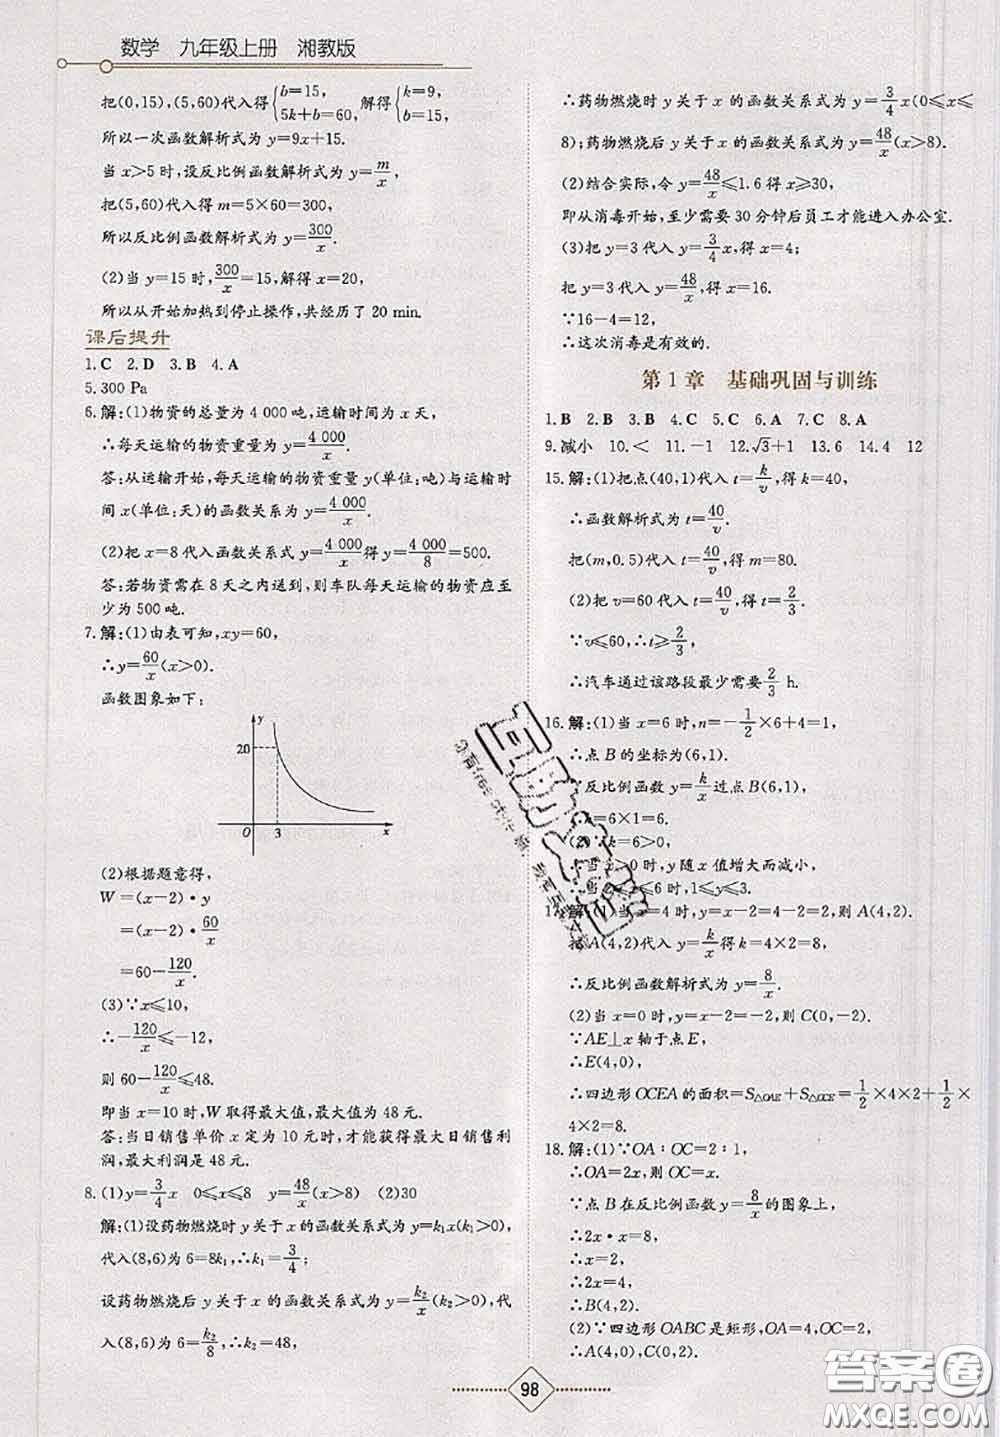 数学 九年级上册 湘教版
把(0,15),(5,60)代入得{b=15, 5k+b=60, 解得{k=9, b=15,
所以一次函数解析式为 y=9x+15.
当 x>5 时,设反比例函数解析式为 y=m/x,
把(5,60)代入得 m=5×60=300,
所以反比例函数解析式为 y=300/x.
(2)当 y=15 时,300/x=15,解得 x=20,
所以从开始加热到停止操作,共经历了 20 min.
课后提升
1.C 2.D 3.B 4.A
5.300 Pa
6.解:(1)物资的总量为 4 000 吨,运输时间为 x 天,
∴每天运输的物资重量为 y=4 000/x.
答:从运输开始,每天运输的物资重量 y(单位:吨)与运输时
间 x(单位:天)的函数关系为 y=4 000/x.
(2)把 x=8 代入函数关系式 y=4 000/x得 y=4 000/8=500.
答:若物资需在 8 天之内送到,则车队每天运输的物资应至
少为 500 吨.
7.解:(1)由表可知,xy=60,
∴y=60/x(x>0).
函数图象如下:
y
20
O 3 x
(2)根据题意得,
W=(x−2)·y
=(x−2)·60/x
=60−120/x.
(3)∵x⩽10,
∴−120/x⩽−12,
则 60−120/x⩽48.
即当 x=10 时,W 取得最大值,最大值为 48 元.
答:当日销售单价 x 定为 10 元时,才能获得最大日销售利
润,最大利润是 48 元.
8.(1)y=3/4x 0⩽x⩽8 y=48/x(x>8) (2)30
解:(1)设药物燃烧时 y 关于 x 的函数关系式为 y=k₁x(k₁>0),
代入(8,6)为 6=8k₁,∴k₁=3/4;
设药物燃烧后 y 关于 x 的函数关系式为 y=k₂/x(k₂>0),代
入(8,6)为 6=k₂/8,∴k₂=48,
∴药物燃烧时 y 关于 x 的函数关系式为 y=3/4x(0⩽x⩽
8);药物燃烧后 y 关于 x 的函数关系式为 y=48/x(x>8).
(2)结合实际,令 y=48/x⩽1.6 得 x⩾30,
即从消毒开始,至少需要 30 分钟后员工才能进入办公室.
(3)把 y=3 代入 y=3/4x,得 x=4;
把 y=3 代入 y=48/x,得 x=16.
∵16−4=12,
∴这次消毒是有效的.
第 1 章 基础巩固与训练
1.B 2.B 3.B 4.C 5.C 6.A 7.C 8.A
9.减小 10.< 11.−1 12.√3+1 13.6 14.4 12
15.解:(1)把点(40,1)代入 t=k/v,得 k=40,
∴函数解析式为 t=40/v.
把(m,0.5)代入 t=40/v,得 m=80.
(2)把 v=60 代入 t=40/v,得 t=2/3.
∵v⩽60,∴t⩾2/3,
∴汽车通过该路段最少需要 2/3 h.
16.解:(1)当 x=6 时,n=−1/2×6+4=1,
∴点 B 的坐标为(6,1).
∵反比例函数 y=k/x过点B(6,1),
∴k=6×1=6.
(2)∵k=6>0,
∴当 x>0 时,y 随 x 值增大而减小,
∴当 2⩽x⩽6 时,1⩽y⩽3.
17.解:(1)当 x=4 时,y=x−2=4−2=2,则 A(4,2).
把 A(4,2)代入 y=k/x得 k=4×2=8,
∴反比例函数解析式为 y=8/x.
(2)当 x=0 时,y=x−2=−2,则 C(0,−2).
∵AE⊥x 轴于点 E,
∴E(4,0),
∴四边形 OCEA 的面积=S△OAE+S△OCE=1/2×4×2+1/2×
4×2=8.
18.解:(1)∵OA∶OC=2∶1,
∴OA=2x,则 OC=x.
∵点 B 在反比例函数 y=8/x的图象上,
∴2x·x=8,
∴x=2,
∴2x=4,
∴B(4,2).
(2)∵四边形 OABC 是矩形,OA=4,OC=2,
∴A(4,0),C(0,2).
98
答案圈
MXQE.COM